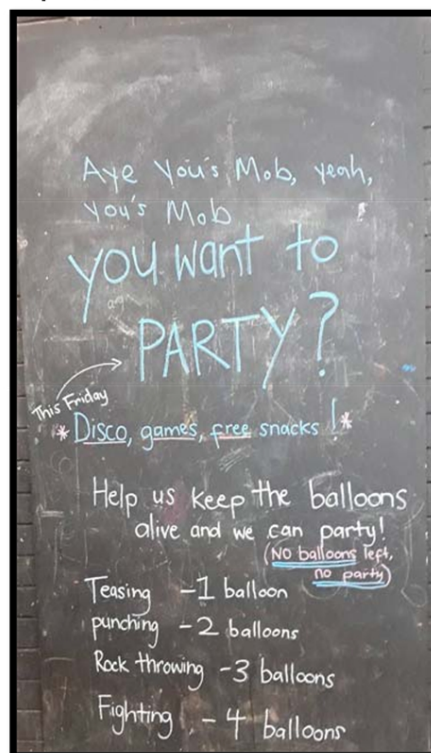 Aye You's Mob, yeah,
You's Mob
you want to
PARTY?
This Friday
*Disco, games, free snacks!*
Help us keep the balloons
alive and we can party!
(NO balloons left,
no party)
Teasing -1 balloon
punching -2 balloons
Rock throwing -3 balloons
Fighting - 4 balloons